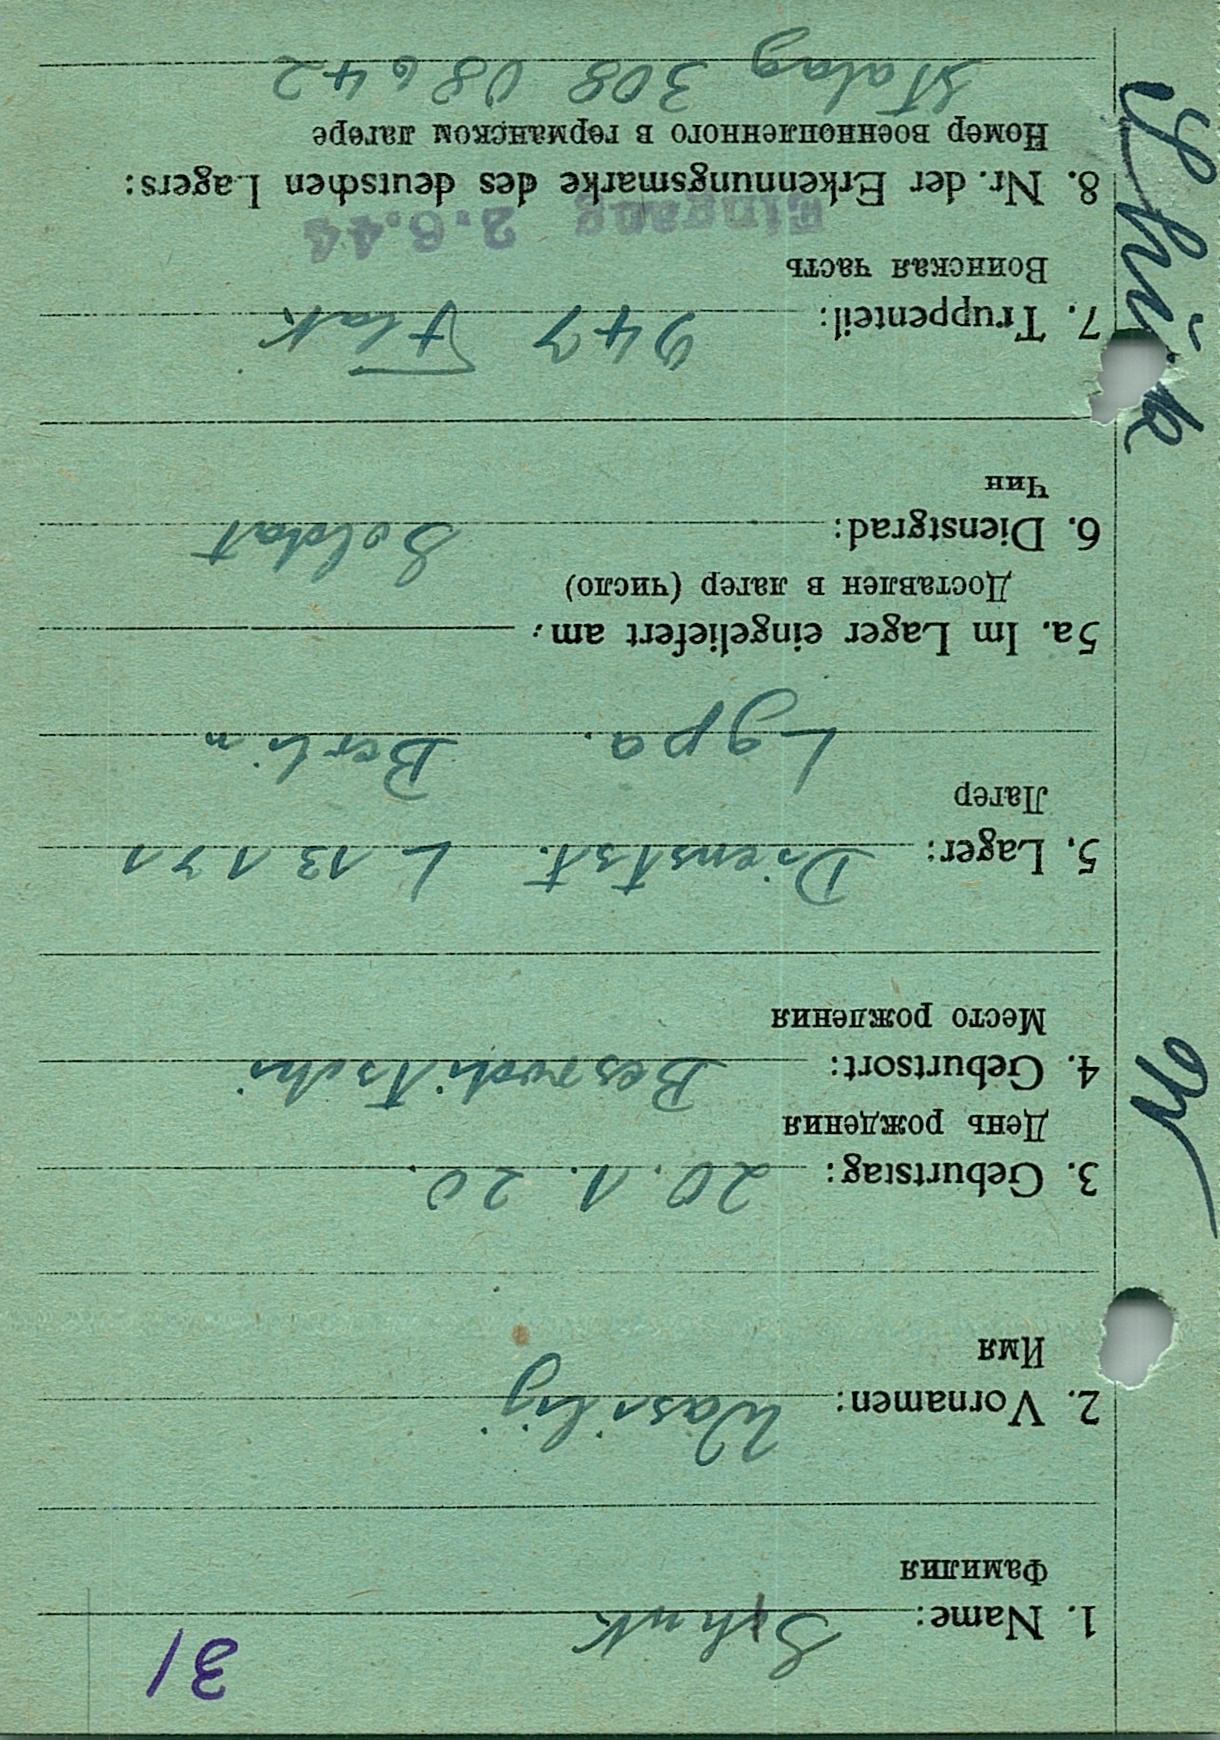 31
1. Name: Schuk
Фамилия
2. Vornamen: Wassilij
Имя
3. Geburtstag: 20. 1. 20.
День рождения
4. Geburtsort:
Место рождения
5. Lager: Dienstst. L 13171
Лагер
Lgpa. Berlin
5a. Im Lager eingeliefert am:
Доставлен в лагер (число)
6. Dienstgrad: Soldat
Чин
7. Truppenteil: 947 Flak
Воинская часть
Eingang 2.6.44
8. Nr. der Erkennungsmarke des deutschen Lagers:
Номер военнопленного в германском лагере
Stalag 308 08642